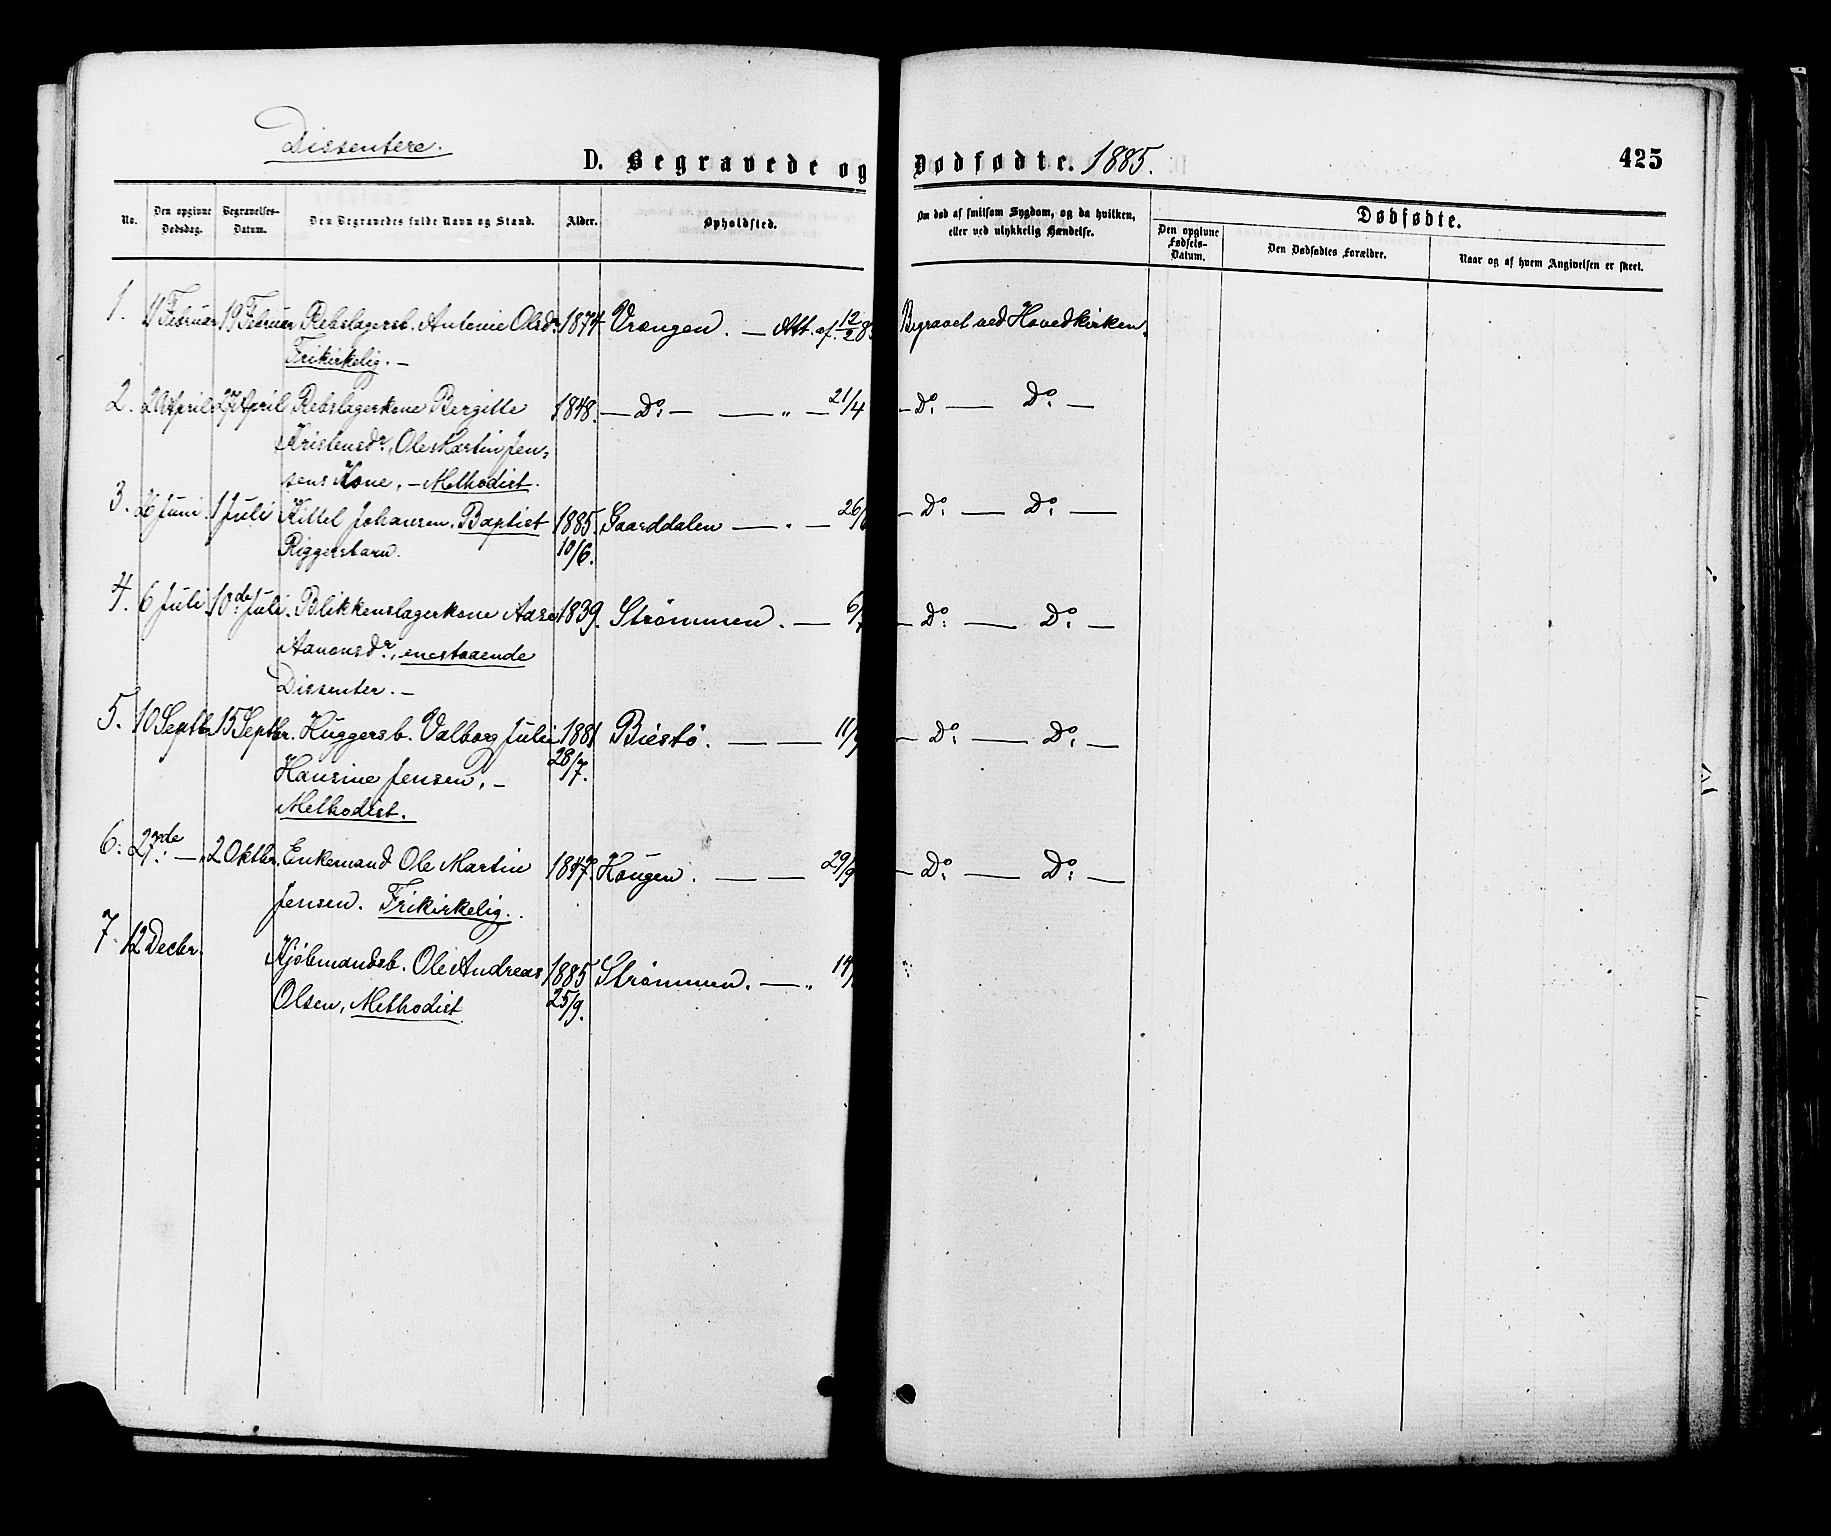 Dissentere.
D. Begravede og Dødfødte. 1885.
425
No.
Den opgivne Dødsdag.
Begravelses-Datum.
Den Begravedes fulde Navn og Stand.
Alder.
Opholdsted.
Om død af smitsom Sygdom, og da hvilken, eller ved ulykkelig Hændelse.
Dødfødte.
Den opgivne Fødsels-Datum.
Den Dødfødtes Forældre.
Naar og af hvem Angivelsen er skeet.
1. 11 Februar 19 Februar Rebslagersb. Antonie Olsdr. 1874. Vrangen. — Att. af 12/2 8 Begravet ved Hovedkirken.
Frikirkelig. —
2. 20 April 27 April Rebslagerkone Bergitte 1848. — Do: — — „ — 21/4 — Do: — Do: —
Kristensdr., Ole Martin Jen-
sens Kone, — Methodist.
3. 26 Juni. 1 Juli Kittel Johansen. Baptist 1885. Gaarddalen — „ — 26/ — Do: — Do: —
Riggerbarn. 10/6.
4. 6 Juli. 10de Juli. Blikkenslagerkone Adse 1839. Strømmen. — 6/7 — Do: — Do: —
Aanonsdr., enestaaende
Dissenter. —
5. 10 Septbr. 15 Septbr. Huggersb. Valborg Julie 1881 Biestø. — — 11/9 — Do: — Do: —
Hansine Jensen. — 28/7.
Methodist.
6. 27de — 2 Oktbr. Enkemand Ole Martin 1847. Haugen. — — 29/9 — Do: — Do: —
Jensen. Frikirkelig.
7. 12 Decbr. Kjøbmandsb. Ole Andreas 1885 Strømmen. — „ 14/
Olsen, Methodist 25/9.